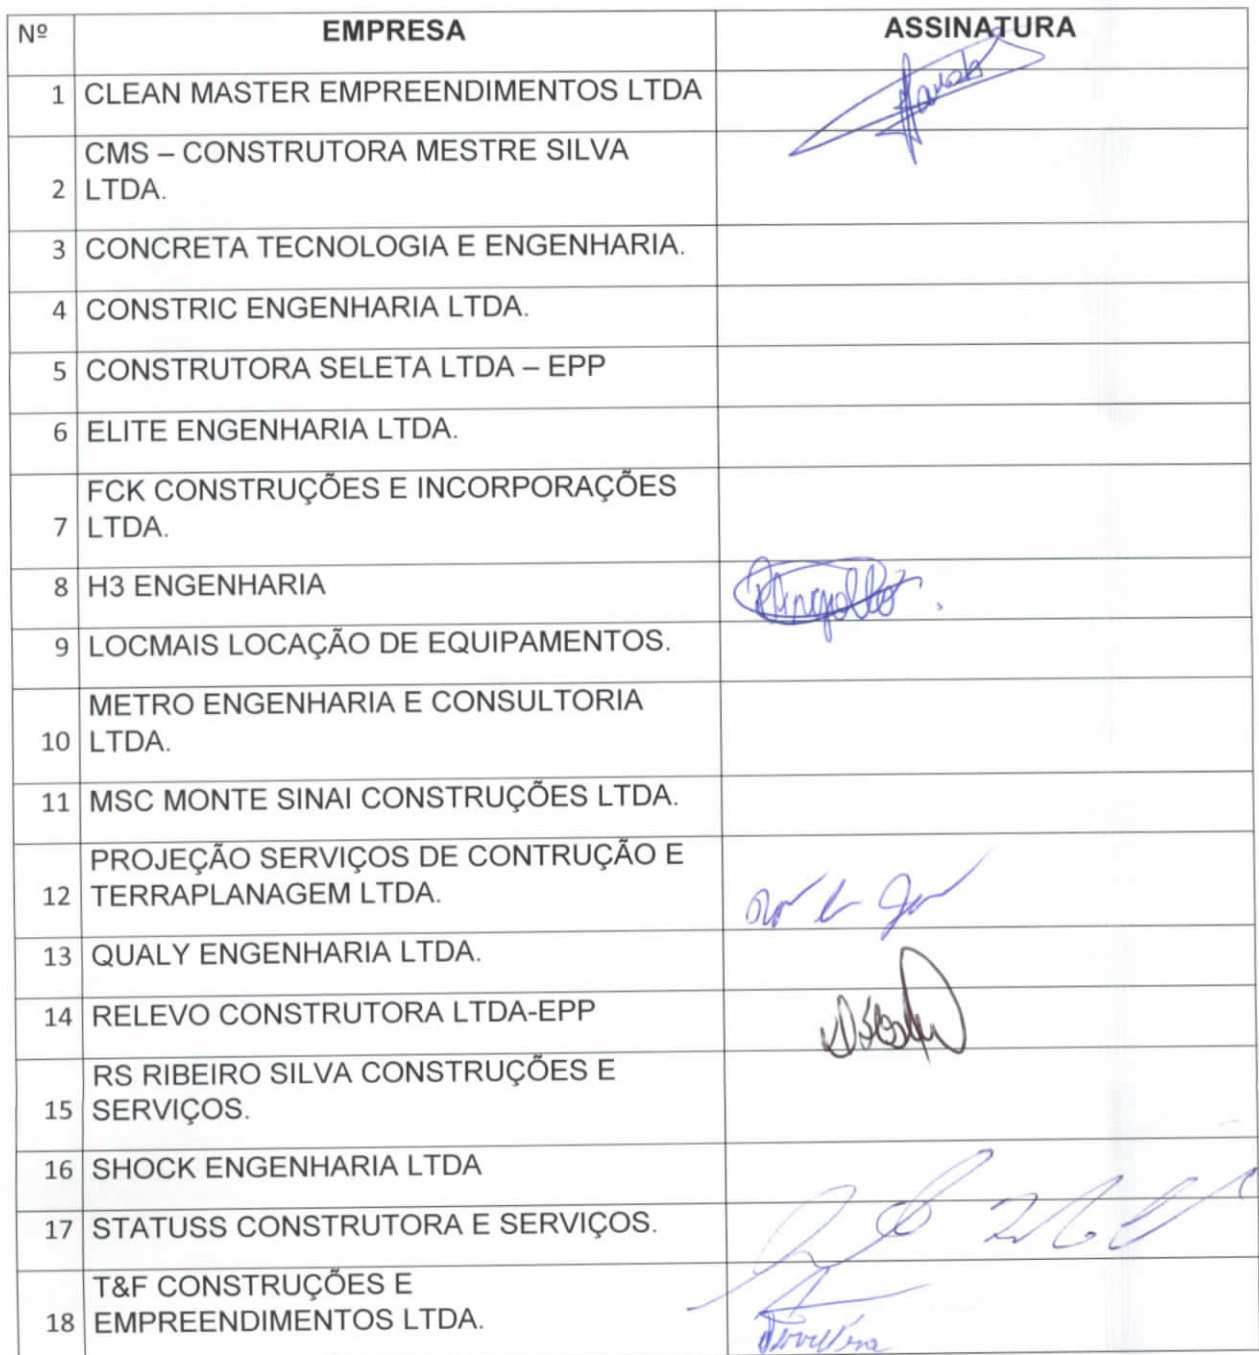 Nº EMPRESA ASSINATURA
1 CLEAN MASTER EMPREENDIMENTOS LTDA
CMS – CONSTRUTORA MESTRE SILVA
2 LTDA.
3 CONCRETA TECNOLOGIA E ENGENHARIA.
4 CONSTRIC ENGENHARIA LTDA.
5 CONSTRUTORA SELETA LTDA – EPP
6 ELITE ENGENHARIA LTDA.
FCK CONSTRUÇÕES E INCORPORAÇÕES
7 LTDA.
8 H3 ENGENHARIA
9 LOCMAIS LOCAÇÃO DE EQUIPAMENTOS.
METRO ENGENHARIA E CONSULTORIA
10 LTDA.
11 MSC MONTE SINAI CONSTRUÇÕES LTDA.
PROJEÇÃO SERVIÇOS DE CONTRUÇÃO E
12 TERRAPLANAGEM LTDA.
13 QUALY ENGENHARIA LTDA.
14 RELEVO CONSTRUTORA LTDA-EPP
RS RIBEIRO SILVA CONSTRUÇÕES E
15 SERVIÇOS.
16 SHOCK ENGENHARIA LTDA
17 STATUSS CONSTRUTORA E SERVIÇOS.
T&F CONSTRUÇÕES E
18 EMPREENDIMENTOS LTDA.